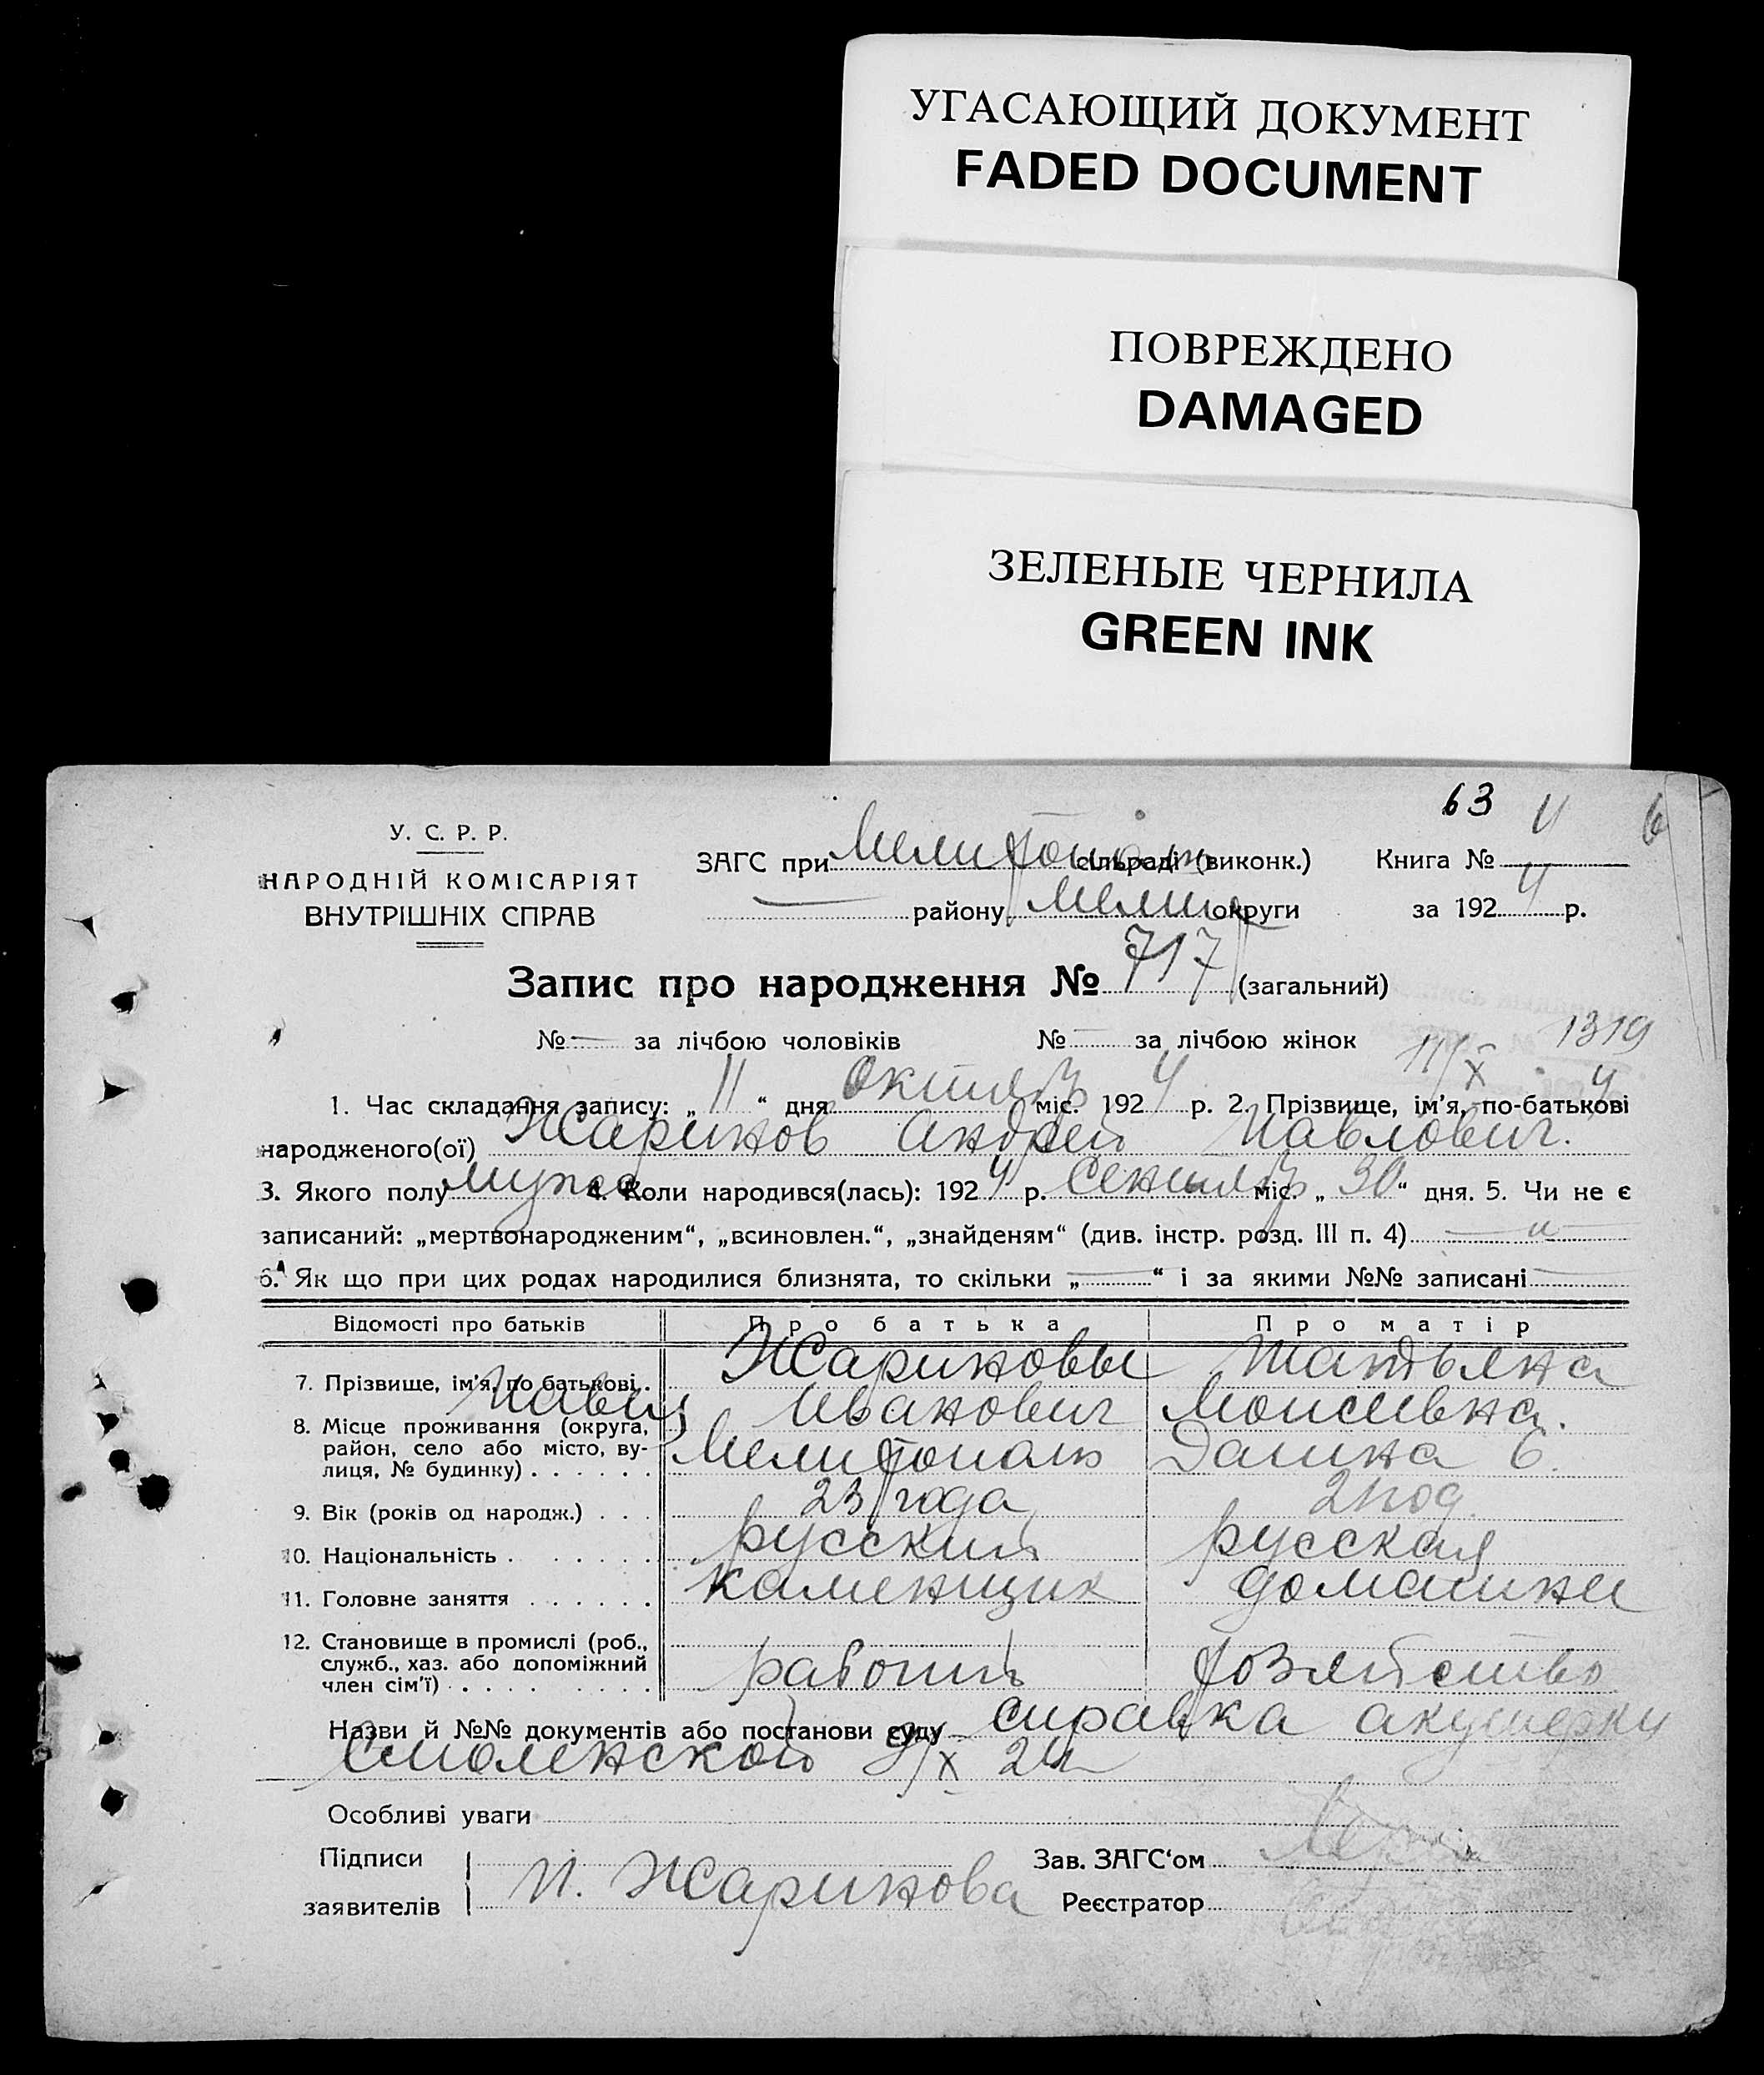 УГАСАЮЩИЙ ДОКУМЕНТ
FADED DOCUMENT
ПОВРЕЖДЕНО
DAMAGED
ЗЕЛЕНЫЕ ЧЕРНИЛА
GREEN INK
63 4 6
У. С. Р. Р.
НАРОДНІЙ КОМІСАРІЯТ
ВНУТРІШНІХ СПРАВ
ЗАГС при Мелитополь сільраді (виконк.) Книга №
— району Мелит округи за 192 4 р.
Запис про народження № 717 (загальний)
№ — за лічбою чоловіків № — за лічбою жінок
11/X 1319
4
1. Час складання запису: „ 11 “ дня октябр міс. 192 4 р. 2. Прізвище, ім'я, по-батькові
народженого(ої) Жаринов Андрей Павлович.
3. Якого полу мужс 4. Коли народився(лась): 192 4 р. Сентябр міс. „ 30 “ дня. 5. Чи не є
записаний: „мертвонародженим“, „всиновлен.“, „знайденям“ (див. інстр. розд. III п. 4) — „ —
6. Як що при цих родах народилися близнята, то скільки „ — “ і за якими №№ записані —
Відомості про батьків Про батька Про матір
7. Прізвище, ім'я, по батькові . Жариновы Татьяна
Павел Иванович Моисеевна.
8. Місце проживання (округа, район, село або місто, ву-
лиця, № будинку) . . . . . . Мелитополь Данина 6.
9. Вік (років од народж.) . . . 23 года 21 год.
10. Національність . . . . . . русский русская
11. Головне заняття . . . . . . каменщик домашнее
12. Становище в промислі (роб.,
служб., хаз. або допоміжний
член сім'ї) . . . . . . . . рабочий хозяйство
Назви й №№ документів або постанови суду справка акушерки
Смоленской 9/X 24
Особливі уваги
Підписи Зав. ЗАГС‘ом
заявителів П. Жаринова Реєстратор